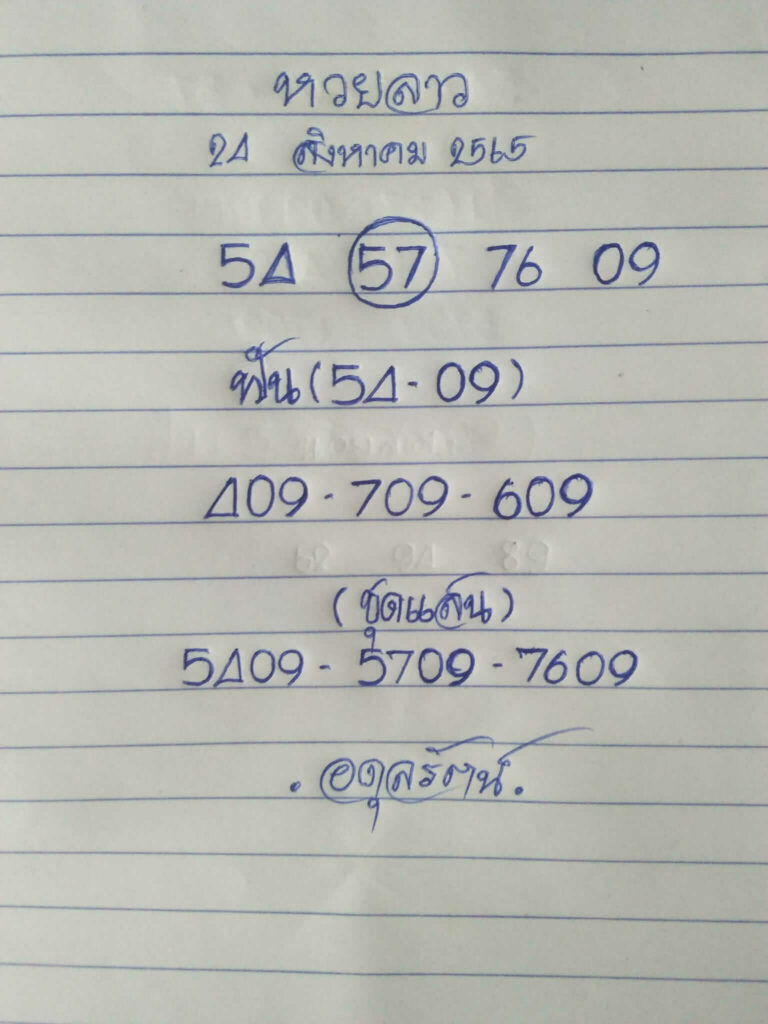 หวยลาว
24 สิงหาคม 2565
54 57 76 09
ฟัน (54 - 09)
409 - 709 - 609
(ชุดแล่น)
5409 - 5709 - 7609
. อดุลรัตน์ .